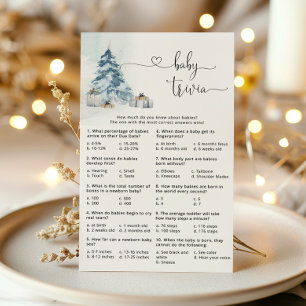 baby
trivia
How much do you know about babies?
The one with the most correct answers wins!
1. What percentage of babies
arrive on their Due Date?
a. 4-5% c. 15-20%
b. 10-12% d. 25-27%
2. What sense do babies
develop first?
a. Hearing c. Smell
b. Touch d. Taste
3. What is the total number of
bones in a newborn baby?
a. 100 c. 300
b. 200 d. 400
4. When do babies begin to cry
real tears?
a. at birth c. 1 month old
b. 2 weeks old d. 2 months old
5. How far can a newborn baby
see?
a. 3-7 inches c. 13-16 inches
b. 8-12 inches d. 17-25 inches
6. When does a baby get its
fingerprints?
a. At birth c. 6 months fetus
b. 4 months old d. 6 months old
7. What body part are babies
born without?
a. Elbows c. Tailbone
b. Kneecaps d. Shoulder blades
8. How many babies are born in
the world every second?
a. 2 c. 6
b. 4 d. 8
9. The average toddler will take
how many steps a minute?
a. 76 steps c. 176 steps
b. 110 steps d. 186 steps
10. When the baby is born, they
cannot do the following?
a. See black and white c. See color
b. Sneeze d. Hear your voice